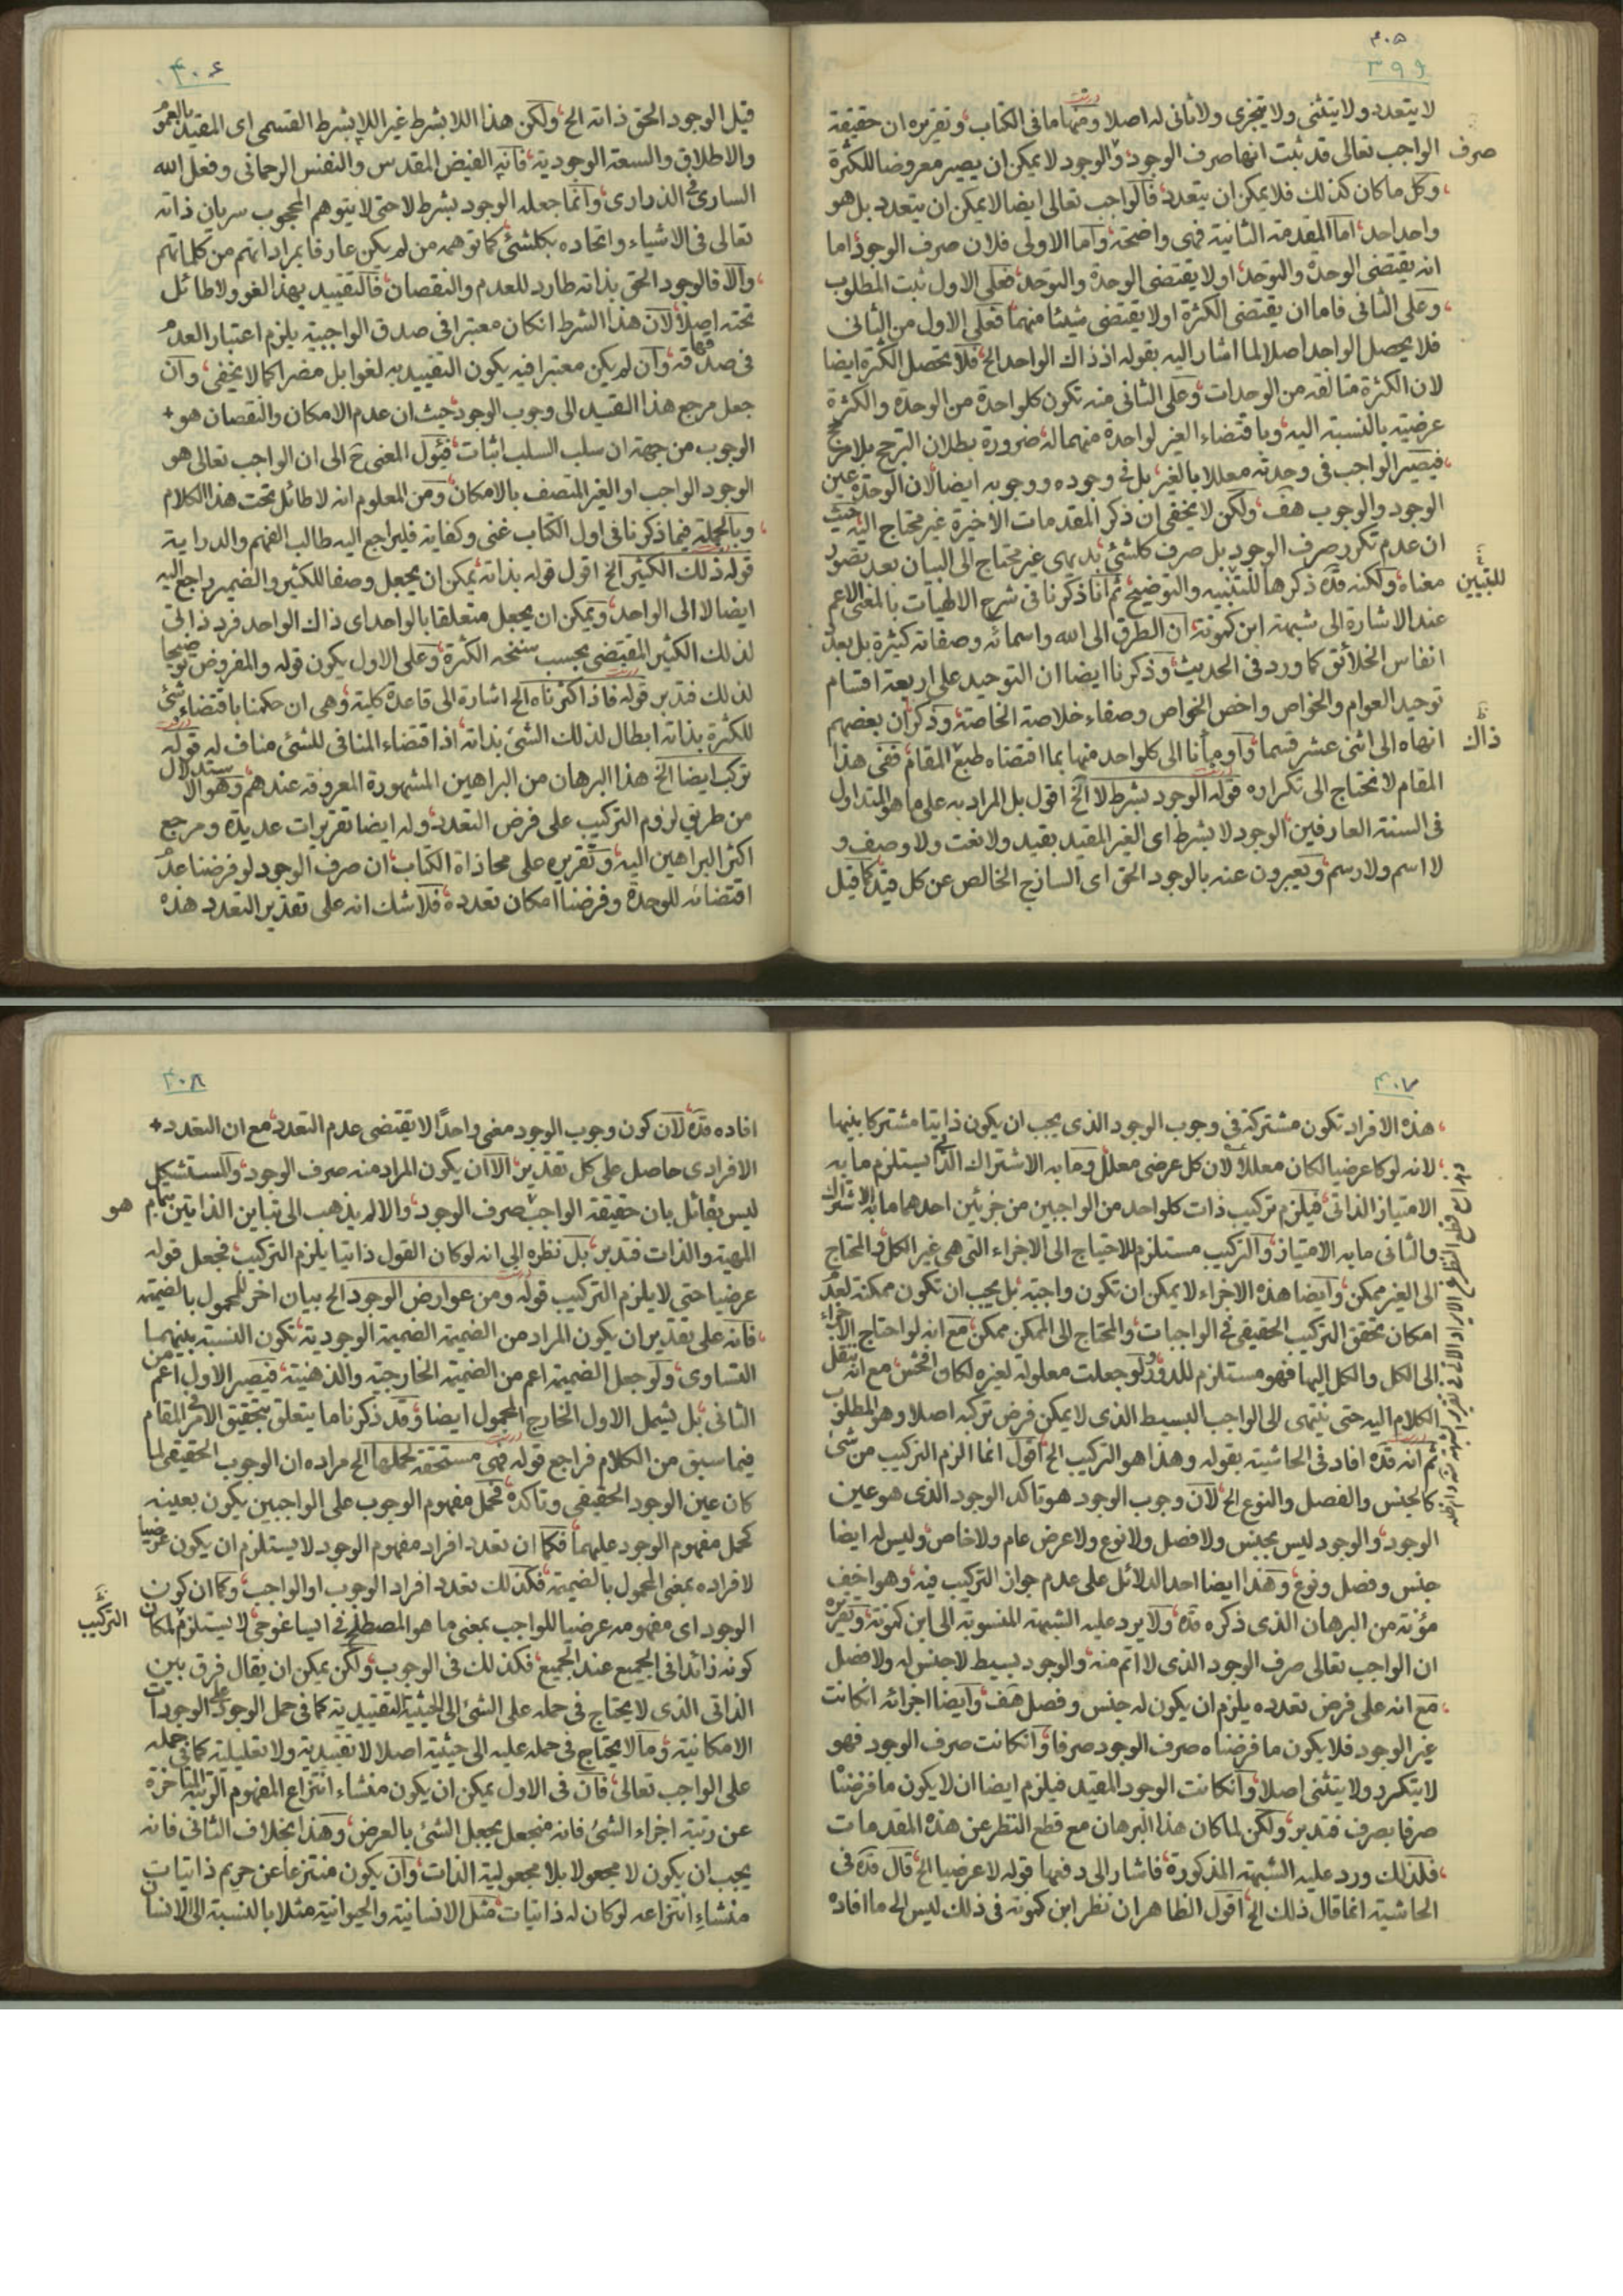 ۴۰۵
۳۹۹
لا يتعدد ولا يتثنى ولا يتجزى ولا ثانى له اصلا ومنها ما فى الكتاب وتقريره ان حقيقة
الواجب تعالى قد ثبت انها صرف الوجود والوجود لا يمكن ان يصير معروضا للكثرة
صرف
وكل ما كان كذلك فلا يمكن ان يتعدد فالواجب تعالى ايضا لا يمكن ان يتعدد بل هو
واحد احد اما المقدمة الثانية فهى واضحة واما الاولى فلان صرف الوجود اما
انه يقتضى الوحدة والتوحد او لا يقتضى الوحدة والتوحد فعلى الاول ثبت المطلوب
وعلى الثانى فاما ان يقتضى الكثرة او لا يقتضى شيئا منهما فعلى الاول من الثانى
فلا يحصل الواحد اصلا لما اشار اليه بقوله اذ ذاك الواحد الخ فلا تحصل الكثرة ايضا
لان الكثرة متالفه من الوحدات وعلى الثانى منه تكون كلواحدة من الوحدة والكثرة
عرضية بالنسبة اليه وباقتضاء الغير لواحدة منهما له ضرورة بطلان الترجح بلا مرجح
فيصير الواجب فى وحدته معللا بالغير بل فى وجوده ووجوبه ايضا لان الوحدة عين
الوجود والوجوب هف ولكن لا يخفى ان ذكر المقدمات الاخيرة غير محتاج اليه حيث
ان عدم تكرر صرف الوجود بل صرف كلشئ بديهى غير محتاج الى البيان بعد تصور
معناه ولكنه قده ذكرها للتنبيه والتوضيح ثم انا ذكرنا فى شرح الالهيات بالمعنى الاعم
للتبيين
عند الاشارة الى شبهة ابن كمونة ان الطرق الى الله واسمائه وصفاته كثيرة بل بعدد
انفاس الخلائق كما ورد فى الحديث وذكرنا ايضا ان التوحيد على اربعة اقسام
توحيد العوام والخواص واخص الخواص وصفاء خلاصة الخاصة وذكر ان بعضهم
انهاه الى اثنى عشر قسما واومأنا الى كلواحد منها بما اقتضاه طبع المقام ففى هذا
ذاك
المقام لا نحتاج الى تكراره قوله الوجود بشرط لا الخ اقول بل المراد به على ما هو المتداول
فى السنة العارفين الوجود لا بشرط اى الغير المقيد بقيد ولا نعت ولا وصف و
لا اسم ولا رسم ويعبرون عنه بالوجود الحق اى الساذج الخالص عن كل قيد كما قيل
۴۰۶
قيل الوجود الحق ذاته الخ ولكن هذا اللا بشرط غير اللا بشرط القسمى اى المقيد بالعموم
والاطلاق والسعة الوجودية فانه الفيض المقدس والنفس الرحمانى وفعل الله
السارى فى الذرارى وانما جعله الوجود بشرط لا حتى لا يتوهم المحجوب سريان ذاته
تعالى فى الاشياء واتحاده بكلشئ كما توهمه من لم يكن عارفا بمراداتهم من كلماتهم
والا فالوجود الحق بذاته طارد للعدم والنقصان فالتقييد بهذا لغو ولا طائل
تحته اصلا لان هذا الشرط انكان معتبرا فى صدق الواجبية يلزم اعتبار العدم
فى صدقه وان لم يكن معتبرا فيه يكون التقييد به لغوا بل مضرا كما لا يخفى وان
جعل مرجع هذا القيد الى وجوب الوجود حيث ان عدم الامكان والنقصان هو
الوجوب من جهة ان سلب السلب اثبات فيئول المعنى ح الى ان الواجب تعالى هو
الوجود الواجب او الغير المتصف بالامكان ومن المعلوم انه لا طائل تحت هذا الكلام
وبالجملة فيما ذكرنا فى اول الكتاب غنى وكفاية فليراجع اليه طالب الفهم والدراية
قوله ذلك الكثير الخ اقول قوله بذاته يمكن ان يجعل وصفا للكثير والضمير راجع اليه
ايضا لا الى الواحد ويمكن ان يجعل متعلقا بالواحد اى ذاك الواحد فرد ذاتى
لذلك الكثير المقتضى بحسب سنخه الكثرة وعلى الاول يكون قوله والمفروض توضيحا
لذلك فتدبر قوله فاذا كثرناه الخ اشارة الى قاعدة كلية وهى ان حكمنا باقتضاء شئ
للكثرة بذاته ابطال لذلك الشئ بذاته اذ اقتضاء المنافى للشئ مناف له قوله
تركب ايضا الخ هذا البرهان من البراهين المشهورة المعروفة عندهم وهو الاستدلال
من طريق لزوم التركيب على فرض التعدد وله ايضا تقريرات عديدة ومرجع
اكثر البراهين اليه وتقريره على محاذاة الكتاب ان صرف الوجود لو فرضنا عدم
اقتضائه للوحدة وفرضنا امكان تعدده فلا شك انه على تقدير التعدد هذه
۴۰۷
هذه الافراد تكون مشتركة فى وجوب الوجود الذى يجب ان يكون ذاتيا مشتركا بينها
لانه لو كا عرضيا لكان معللا لان كل عرضى معلل وما به الاشتراك الذاتى يستلزم ما به
الامتياز الذاتى فيلزم تركيب ذات كلواحد من الواجبين من جزئين احدهما ما به الاشتراك
والثانى ما به الامتياز والتركيب مستلزم للاحتياج الى الاجزاء التى هى غير الكل والمحتاج
الى الغير ممكن وايضا هذه الاجزاء لا يمكن ان تكون واجبة بل يجب ان تكون ممكنة لعدم
امكان تحقق التركيب الحقيقى فى الواجبات والمحتاج الى الممكن ممكن مع انه لو احتاج الاجزاء
الى الكل والكل اليها فهو مستلزم للدور ولو جعلت معلولة لغيره لكان افحش مع انه ننقل
الكلام اليه حتى ينتهى الى الواجب البسيط الذى لا يمكن فرض تركبه اصلا وهو المطلوب
ثم انه قده افاد فى الحاشية بقوله وهذا هو التركيب الخ اقول انما الزم التركيب من شئ
كالجنس والفصل والنوع الخ لان وجوب الوجود هو تاكد الوجود الذى هو عين
الوجود والوجود ليس بجنس ولا فصل ولا نوع ولا عرض عام ولا خاص وليس له ايضا
جنس وفصل ونوع وهذا ايضا احد الدلائل على عدم جواز التركيب فيه وهو اخف
مؤنة من البرهان الذى ذكره قده ولا يرد عليه الشبهة المنسوبة الى ابن كمونة وتقريره
ان الواجب تعالى صرف الوجود الذى لا اتم منه والوجود بسيط لا جنس له ولا فصل
مع انه على فرض تعدده يلزم ان يكون له جنس وفصل هف وايضا اجزائه انكانت
غير الوجود فلا يكون ما فرضناه صرف الوجود صرفا وانكانت صرف الوجود فهو
لا يتكرر ولا يتثنى اصلا وانكانت الوجود المقيد فيلزم ايضا ان لا يكون ما فرضناه
صرفا بصرف فتدبر ولكن لما كان هذا البرهان مع قطع النظر عن هذه المقدمات
فلذلك ورد عليه الشبهة المذكورة فاشار الى دفعها قوله لا عرضيا الخ قال قده فى
الحاشية انما قال ذلك الخ اقول الظاهر ان نظر ابن كمونة فى ذلك ليس الى ما افاده
۴۰۸
افاده قده لان كون وجوب الوجود معنى واحدًا لا يقتضى عدم التعدد مع ان التعدد
الافرادى حاصل على كل تقدير الا ان يكون المراد منه صرف الوجود والمستشكل
ليس بقائل بان حقيقة الواجب صرف الوجود والا لم يذهب الى تباين الذاتين بتمام
هو
المهية والذات فتدبر بل نظره الى انه لو كان القول ذاتيا يلزم التركيب فجعل قوله
عرضيا حتى لا يلزم التركيب قوله ومن عوارض الوجود الخ بيان اخر للمحمول بالضميمة
فانه على تقدير ان يكون المراد من الضميمة الضميمة الوجودية تكون النسبة بينهما
التساوى ولو جعل الضميمة اعم من الضميمة الخارجية والذهنية فيصير الاول اعم من
الثانى بل يشمل الاول الخارج المحمول ايضا وقد ذكرنا ما يتعلق بتحقيق الامر فى المقام
فيما سبق من الكلام فراجع قوله فهى مستحقة لحملها الخ مراده ان الوجوب الحقيقى لما
كان عين الوجود الحقيقى وتاكده فحمل مفهوم الوجوب على الواجبين يكون بعينه
كحمل مفهوم الوجود عليهما فكما ان تعدد افراد مفهوم الوجود لا يستلزم ان يكون عرضيا
لافراده بمعنى المحمول بالضميمة فكذلك تعدد افراد الوجوب او الواجب وكما ان كون
الوجود اى مفهومه عرضيا للواجب بمعنى ما هو المصطلح فى ايساغوجى لا يستلزم لمكان
التركيب
كونه زائدا فى الجميع عند الجميع فكذلك فى الوجوب ولكن يمكن ان يقال فرق بين
الذاتى الذى لا يحتاج فى حمله على الشئ الى الحيثية التقييدية كما فى حمل الوجود على الوجودات
الامكانية وما لا يحتاج فى حمله عليه الى حيثية اصلا لا تقييدية ولا تعليلية كما فى حمله
على الواجب تعالى فان فى الاول يمكن ان يكون منشاء انتزاع المفهوم الرتبة المتاخرة
عن رتبة اجزاء الشئ فانه منجعل بجعل الشئ بالعرض وهذا بخلاف الثانى فانه
يجب ان يكون لا مجعولا بلا مجعولية الذات وان يكون منتزعا عن حريم ذاتيات
منشاء انتزاعه لو كان له ذاتيات مثل الانسانية والحيوانية مثلا بالنسبة الى الانسان